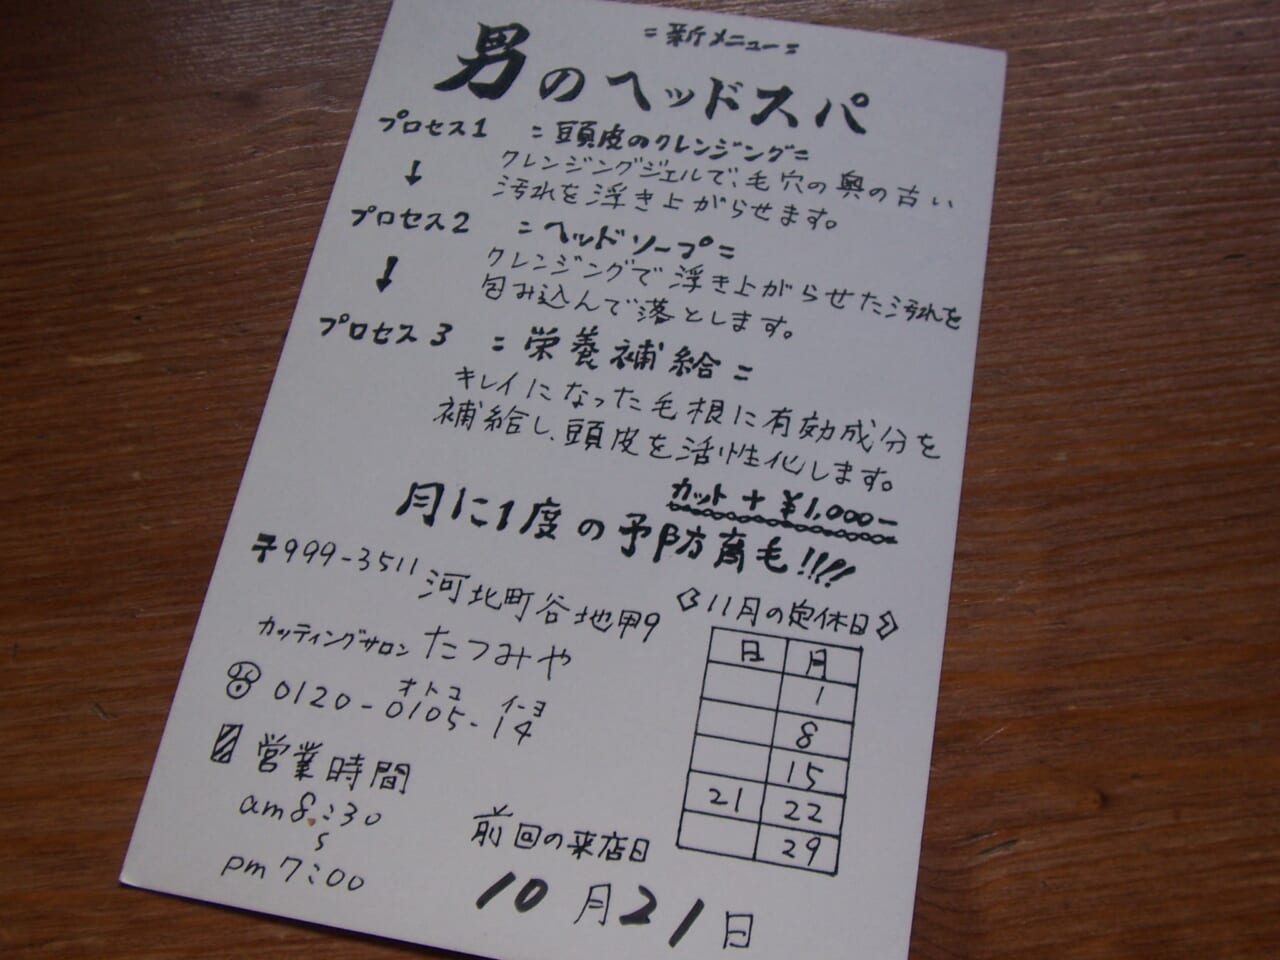 =新メニュー=
男のヘッドスパ
プロセス1 =頭皮のクレンジング=
クレンジングジェルで、毛穴の奥の古い
汚れを浮き上がらせます。
↓
プロセス2 =ヘッドソープ=
クレンジングで浮き上がらせた汚れを
包み込んで落とします。
↓
プロセス3 =栄養補給=
キレイになった毛根に有効成分を
補給し、頭皮を活性化します。
カット+¥1,000-
月に1度の予防育毛!!!!
〒999-3511 河北町谷地甲9
カッティングサロン たつみや
オトコ イーヨ
☎ 0120-0105-14
営業時間
am8:30
〜
pm7:00
〈11月の定休日〉
日 月
1
8
15
21 22
29
前回の来店日
10月21日